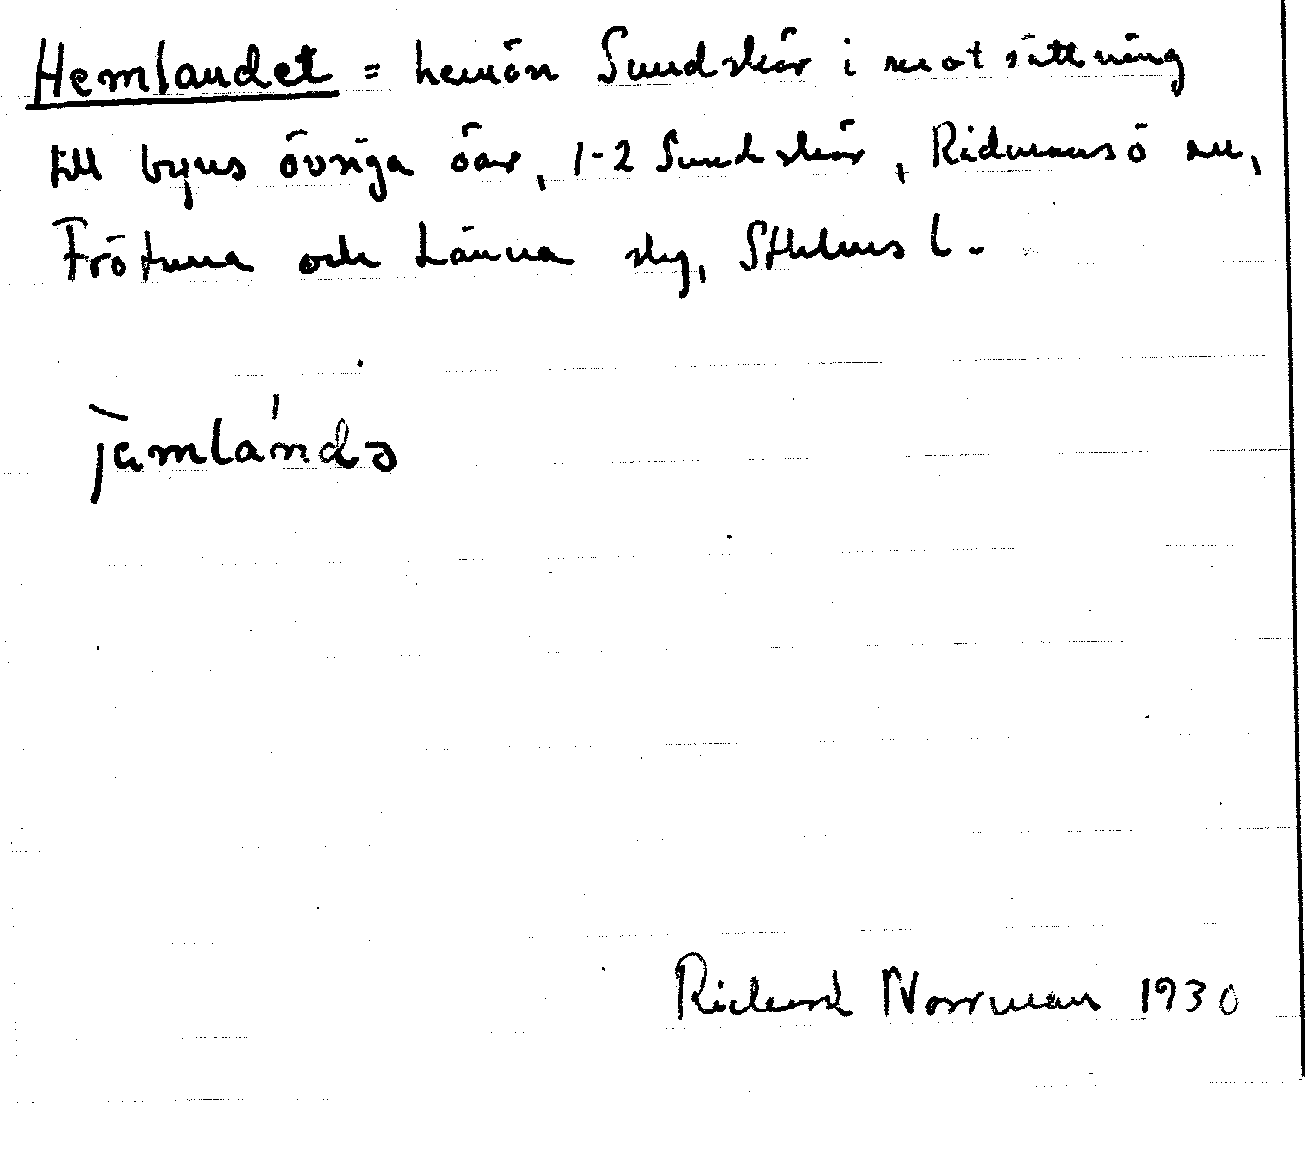 Hemlandet = hemön Sundskär i motsättning
till byns övriga öar, 1-2 Sundskär, Ridmansö sn,
Frötuna och Länna skg, Sthlms l.
jamla'ndə
Rickard Norrman 1930